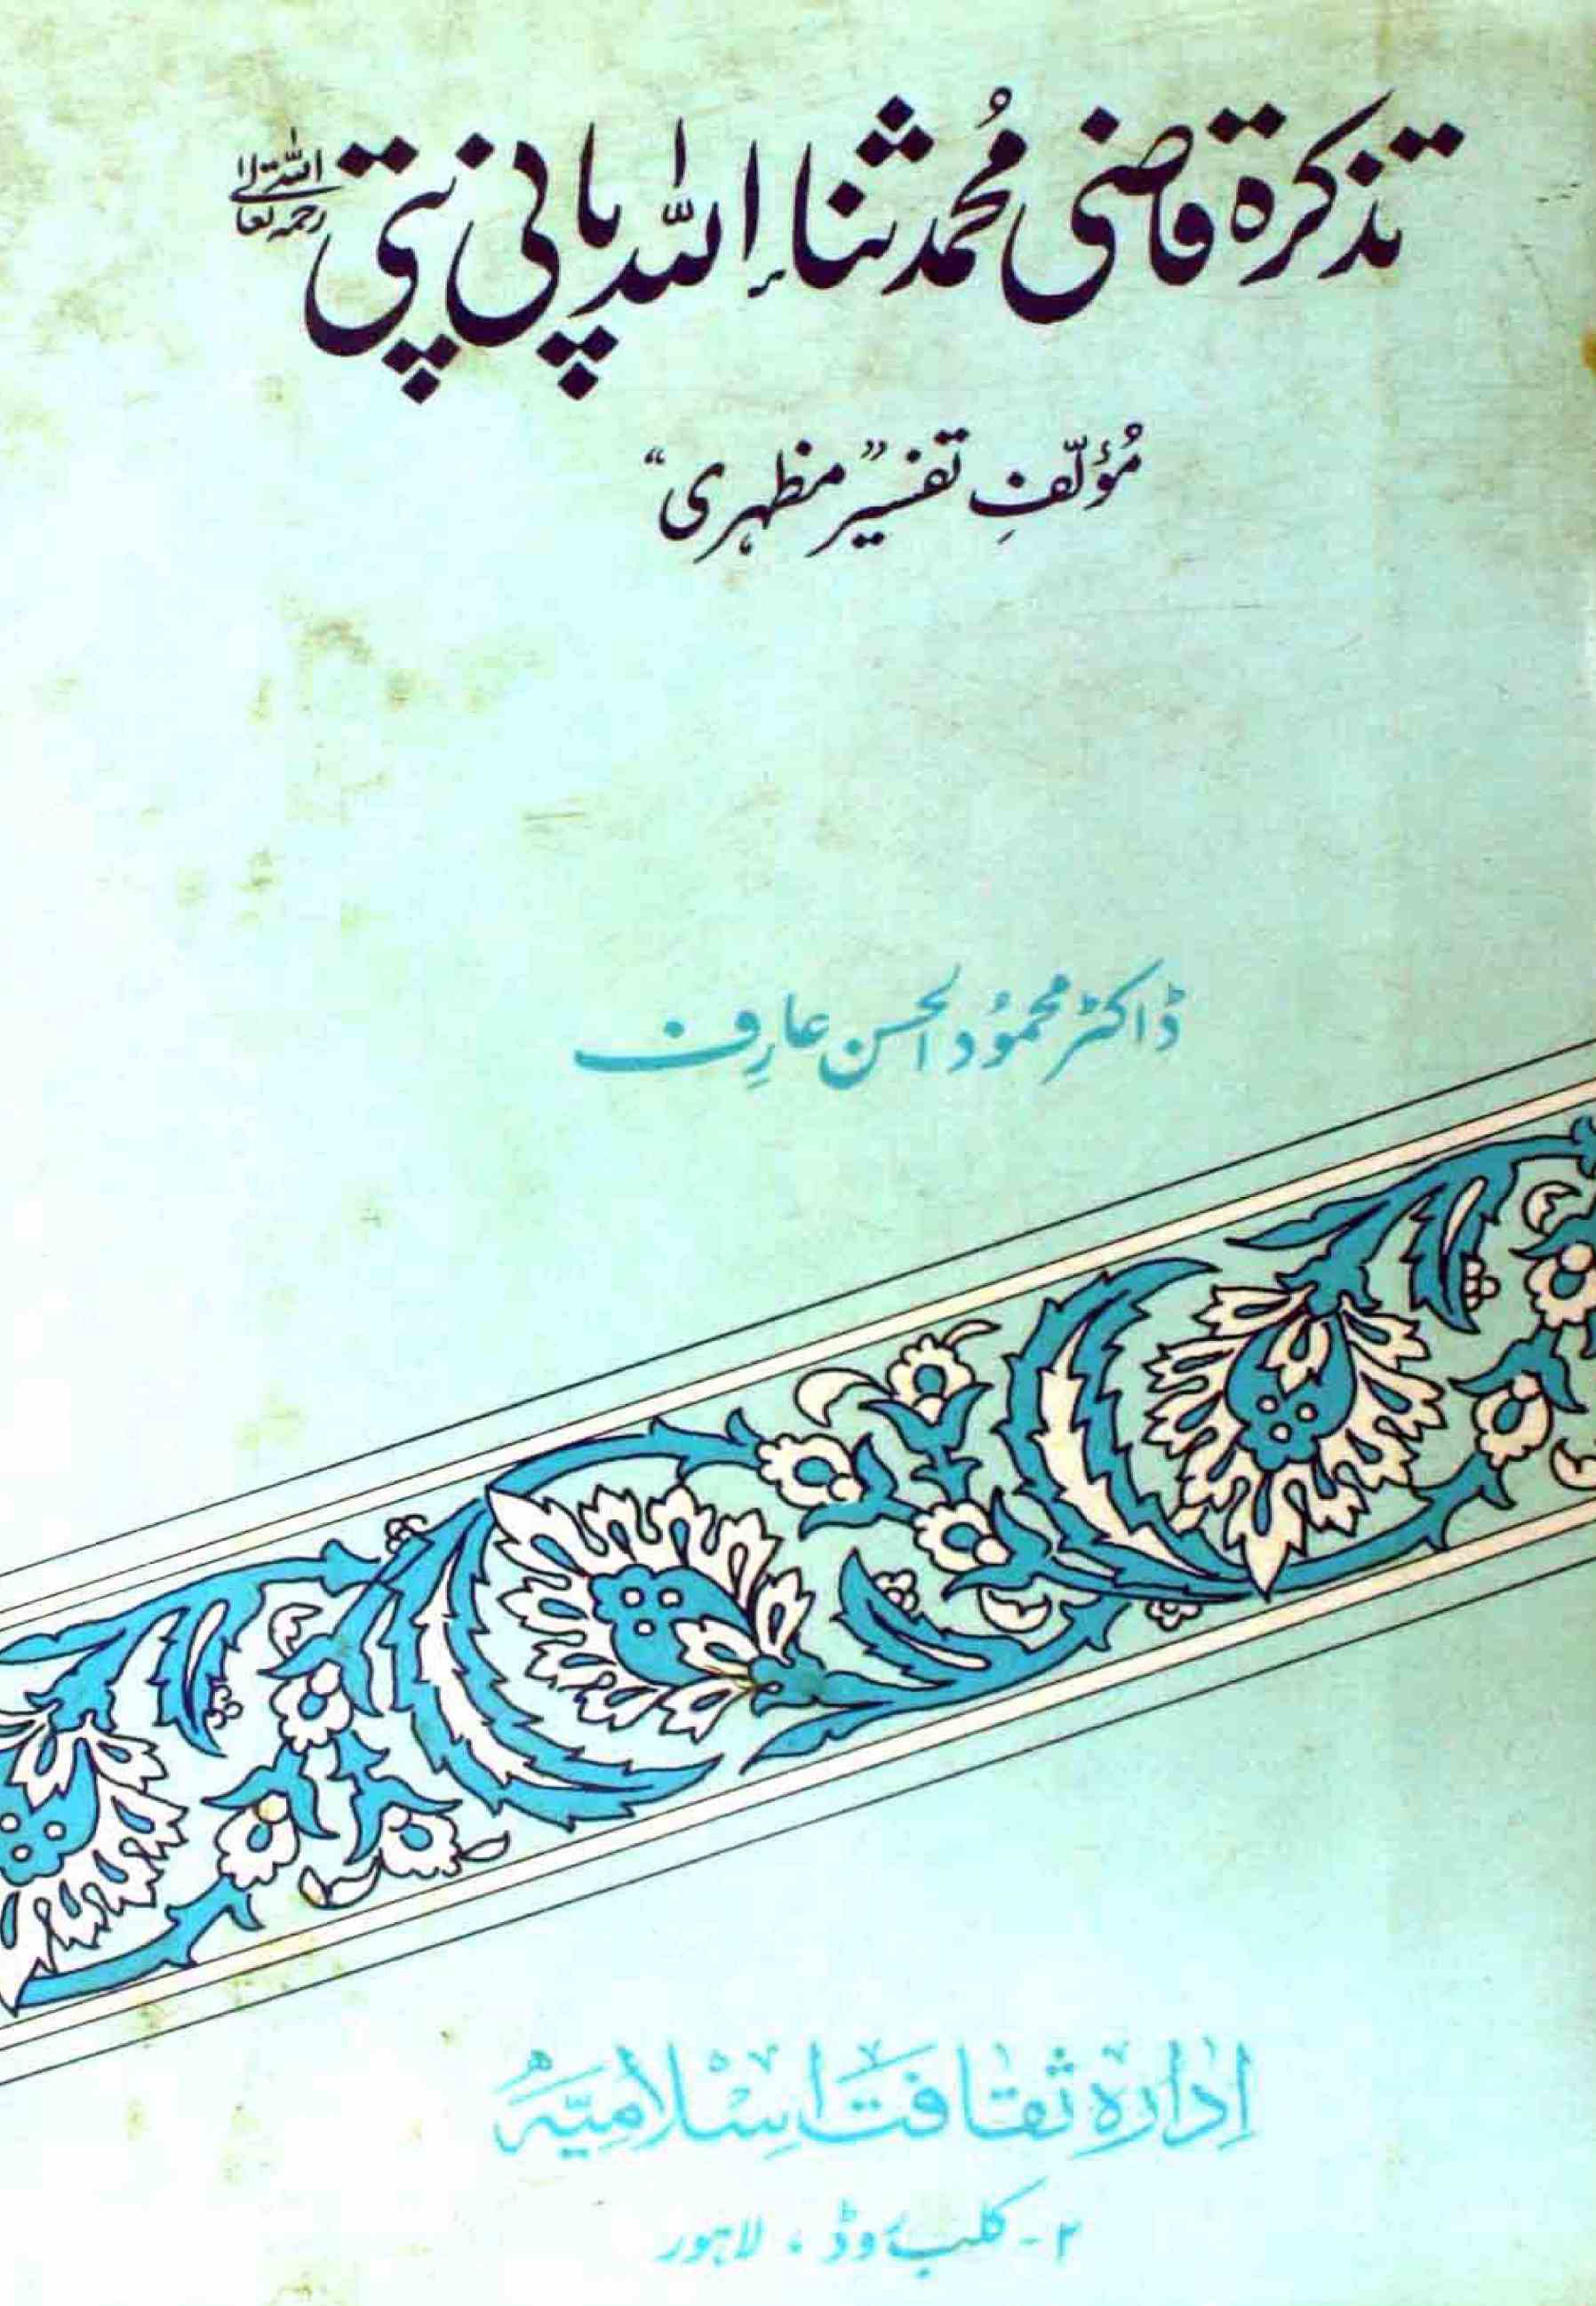 تذکرۃ قاضی مُحمد ثناءِ اللہ پانی پتی رحمۃ اللہ تعالیٰ
مُؤلّفِ تفسیر ”مظہری“
ڈاکٹر محمودُ الحسن عارِف
اِدارہ ثقافتِ اِسلامیّہ
۲ - کلب روڈ ، لاہور